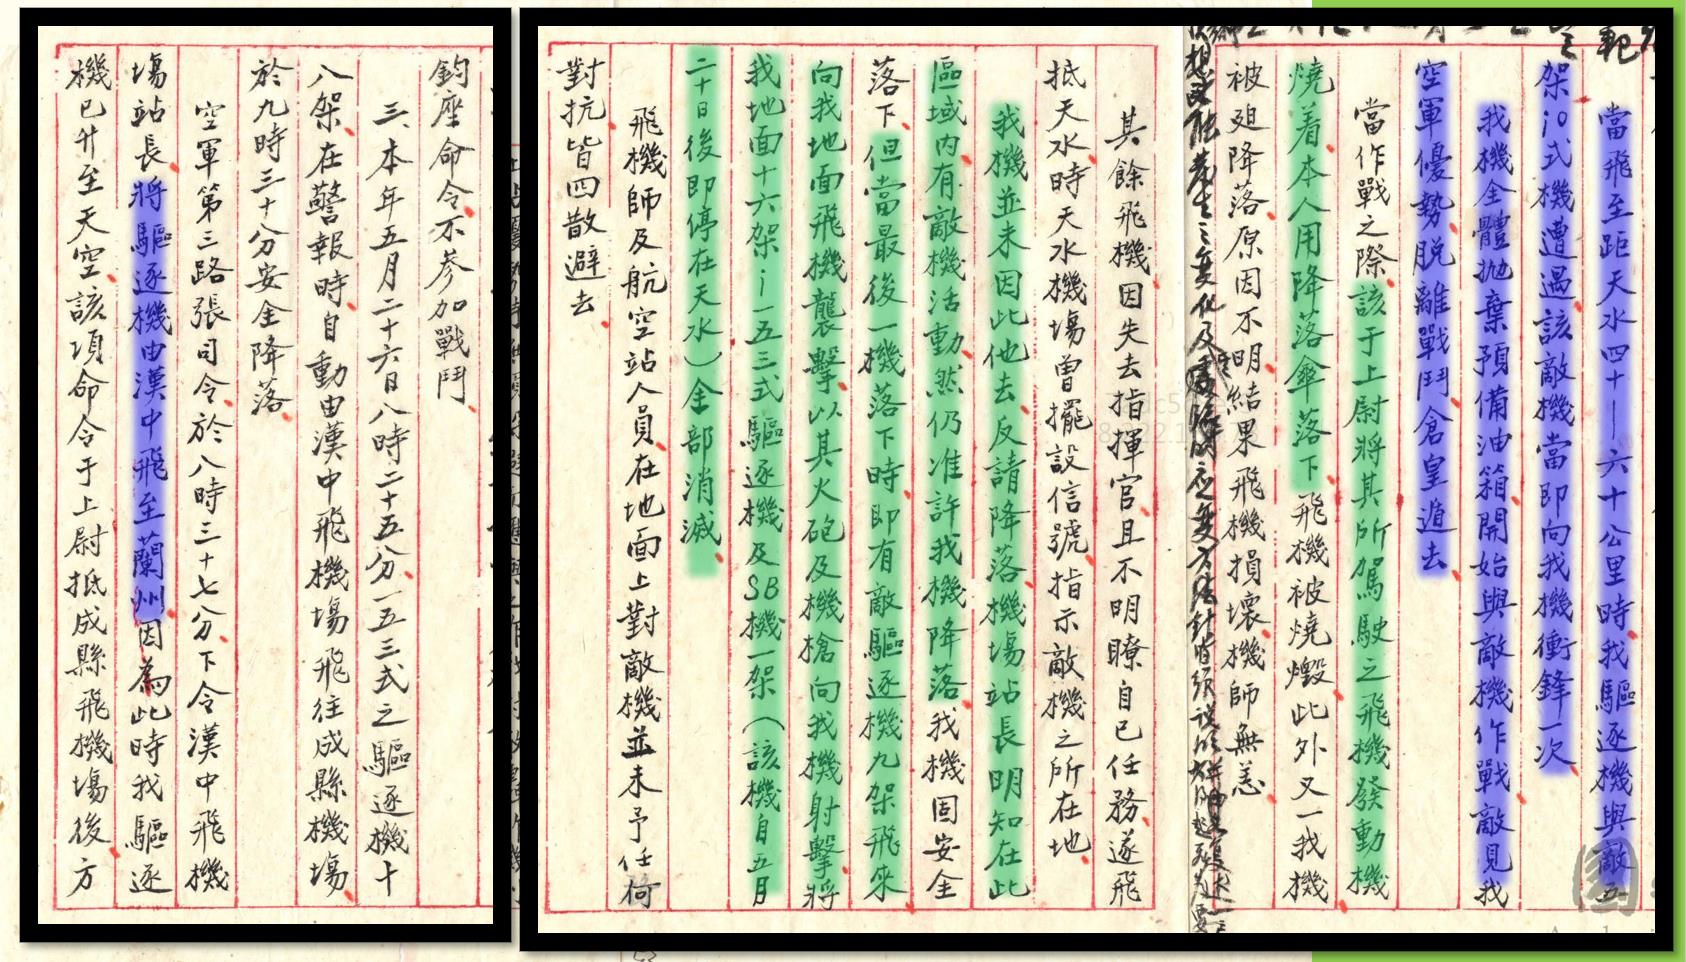 鈞座命令不參加戰鬥
三、本年五月二十六日八時二十五分一五三式之驅逐機十
八架在警報時自動由漢中飛機場飛往成縣機場
於九時三十分安全降落
空軍第三路張司令於八時三十七分下令漢中飛機
場站長將驅逐機由漢中飛至蘭州因為此時我驅逐
機已升至天空該項命令于上尉抵成縣飛機場後方
當飛至距天水四十—六十公里時我驅逐機與敵五
架i0式機遭遇該敵機當即向我機衝鋒一次
我機全體拋棄預備油箱開始與敵機作戰敵見我
空軍優勢脫離戰鬥倉皇遁去
當作戰之際該于上尉將其所駕駛之飛機發動機
燒着本人用降落傘落下飛機被燒燬此外又一我機
被迫降落原因不明結果飛機損壞機師無恙
其餘飛機因失去指揮官且不明瞭自已任務遂飛
抵天水時天水機場曾擺設信號指示敵機之所在地
我機並未因此他去反請降落機場站長明知在此
區域內有敵機活動然仍准許我機降落我機固安全
落下但當最後一機落下時即有敵驅逐機九架飛來
向我地面飛機襲擊以其火砲及機槍向我機射擊將
我地面十六架i一五三式驅逐機及SB機一架（該機自五月
二十日後即停在天水）全部消滅
飛機師及航空站人員在地面上對敵機並未予任何
對抗皆四散避去